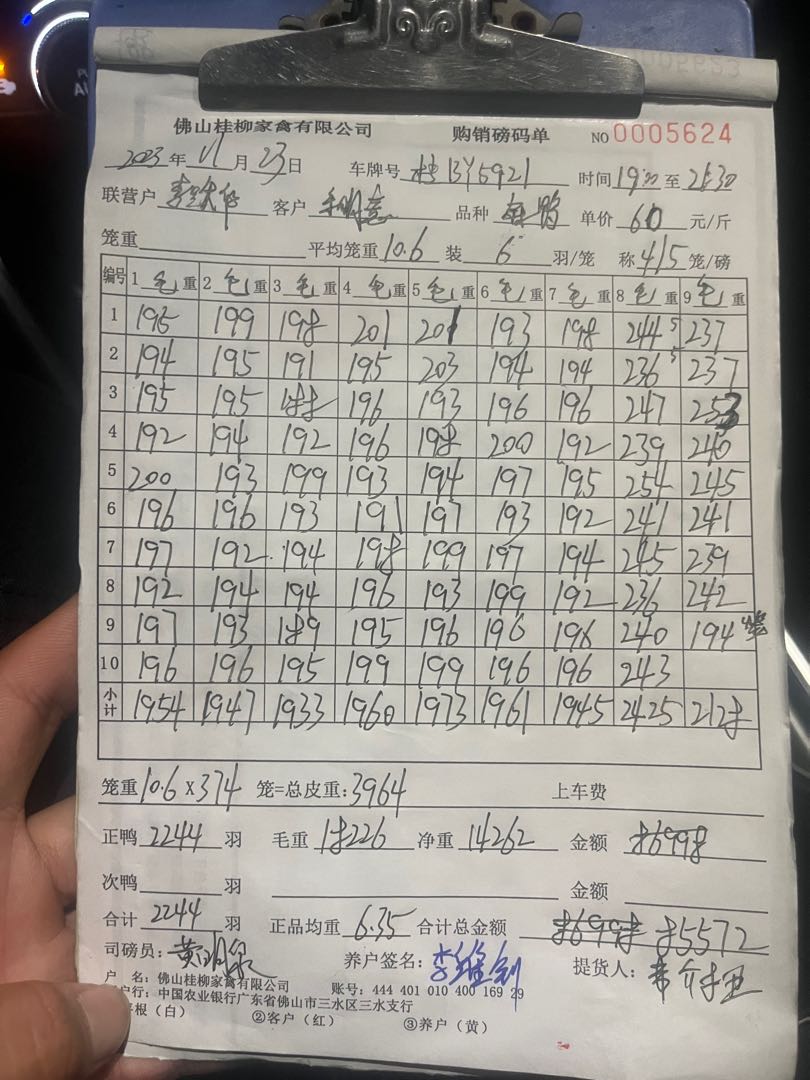 佛山桂柳家禽有限公司 购销磅码单 NO 0005624
2023 年 11 月 23 日 车牌号 桂BY5921 时间 19:00 至 21:30
联营户 客户 品种 单价 60 元/斤
笼重 平均笼重 10.6 装 6 羽/笼 称 4/5 笼/磅
编号 1 毛 重 2 毛 重 3 毛 重 4 毛 重 5 毛 重 6 毛 重 7 毛 重 8 毛 重 9 毛 重
1 195 199 198 201 201 193 198 244 5 237
2 194 195 191 195 203 194 194 236 5 237
3 195 195 188 196 193 196 196 247 253
4 192 194 192 196 198 200 192 239 240
5 200 193 199 193 194 197 195 254 245
6 196 196 193 191 197 193 192 241 241
7 197 192 194 198 199 197 194 245 239
8 192 194 194 196 193 199 192 236 242
9 197 193 189 195 196 196 196 240 194 4笼
10 196 196 195 199 199 196 196 243
小计 1954 1947 1933 1960 1973 1961 1945 2425 2128
笼重 10.6 x 374 笼=总皮重: 3964 上车费
正鸭 2244 羽 毛重 18226 净重 14262 金额 86998
次鸭 羽 金额
合计 2244 羽 正品均重 6.35 合计总金额 86998 85572
司磅员: 养户签名: 提货人:
户 名: 佛山桂柳家禽有限公司 账号: 444 401 010 400 169 29
户行: 中国农业银行广东省佛山市三水区三水支行
根(白) ②客户(红) ③养户(黄)